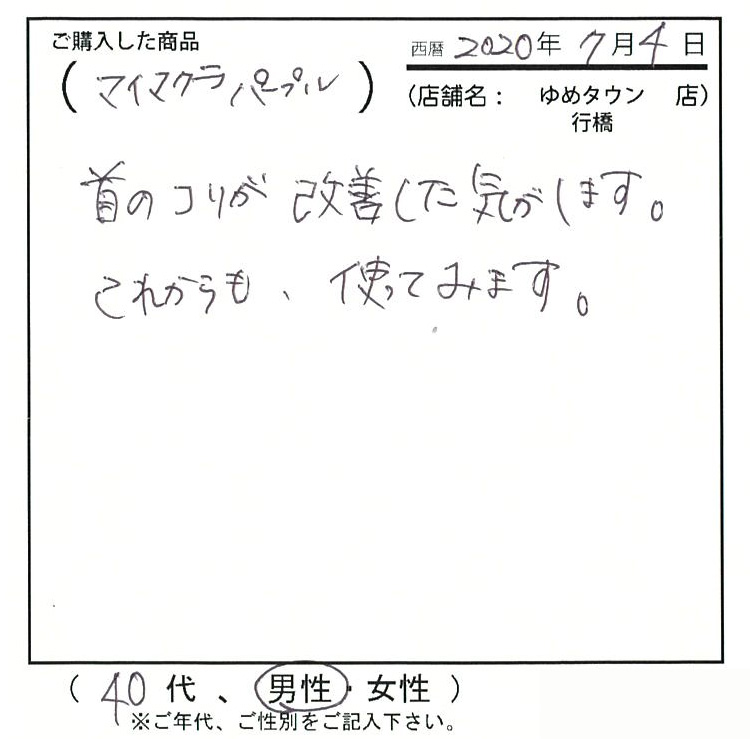 ご購入した商品
西暦 2020年 7月4日
(マイマクラパープル)
(店舗名： ゆめタウン 店)
行橋
首のコリが改善した気がします。
これからも、使ってみます。
(40代、男性・女性)
※ご年代、ご性別をご記入下さい。